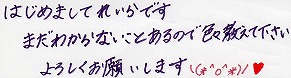 はじめまして れいかです
まだわからないことあるので色々教えて下さい
よろしくお願いします (*^o^*)/♥